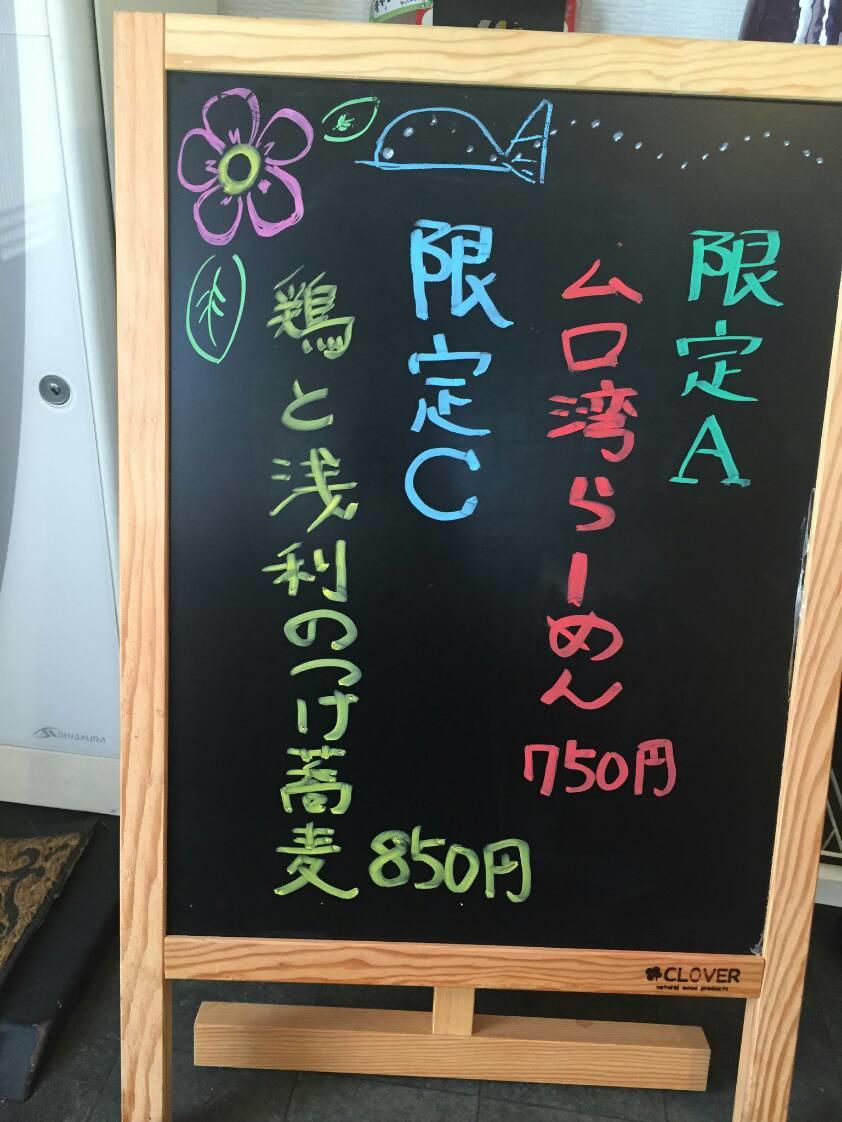 限定A
台湾らーめん
750円
限定C
鶏と浅利のつけ蕎麦
850円
CLOVER
natural wood products
SHIBAURA